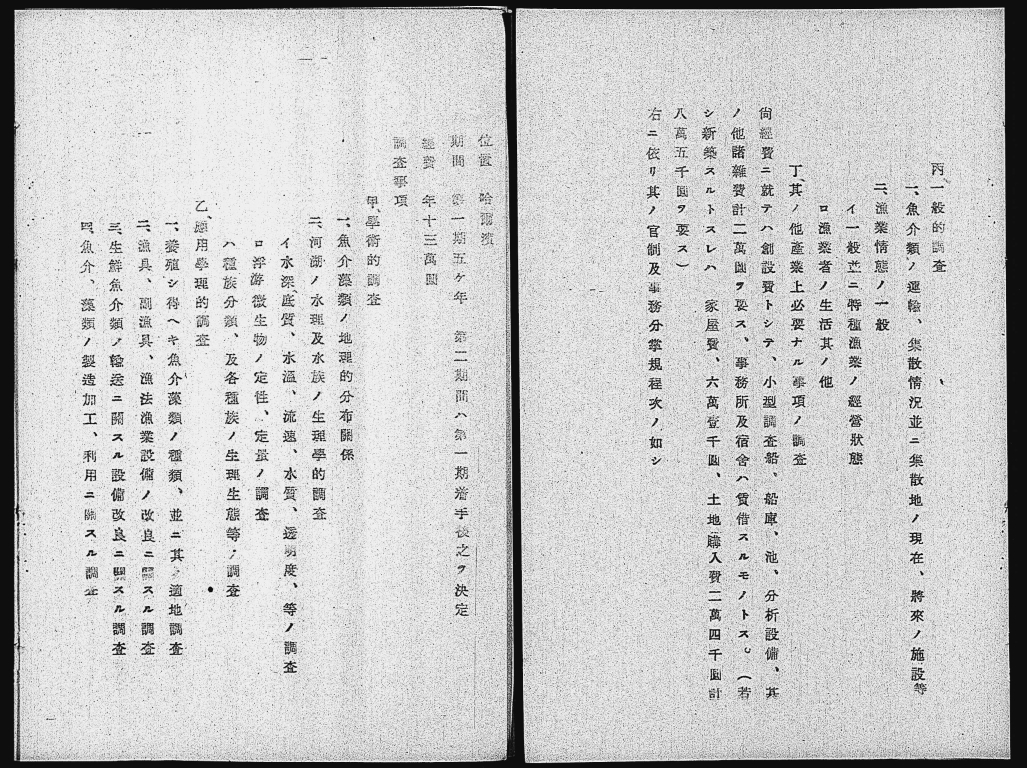 位置　哈爾濱
期間　第一期五ケ年　第二期間ハ第一期着手後之ヲ決定
經費　年十三萬圓
調査事項
甲、學術的調査
一、魚介藻類ノ地理的分布關係
二、河湖ノ水理及水族ノ生理學的調査
イ水深、底質、水溫、流速、水質、透明度、等ノ調査
ロ浮游微生物ノ定性、定量ノ調査
ハ種族分類、及各種族ノ生理生態等ノ調査
乙、應用學理的調査
一、養殖シ得ヘキ魚介藻類ノ種類、並ニ其ノ適地調査
二、漁具、副漁具、漁法漁業設備ノ改良ニ關スル調査
三、生鮮魚介類ノ輸送ニ關スル設備改良ニ關スル調査
四、魚介、藻類ノ製造加工、利用ニ關スル調査
丙、一般的調査
一、魚介類ノ運輸、集散情況並ニ集散地ノ現在、將來ノ施設等
二、漁業情態ノ一般
イ一般並ニ特種漁業ノ經營狀態
ロ漁業者ノ生活其ノ他
丁、其ノ他產業上必要ナル事項ノ調査
尙經費ニ就テハ創設費トシテ、小型調査船、船庫、池、分析設備、其
ノ他諸雜費計二萬圓ヲ要ス、事務所及宿舍ハ賃借スルモノトス。（若
シ新築スルトスレハ　家屋費、六萬壹千圓、土地購入費二萬四千圓計
八萬五千圓ヲ要ス）
右ニ依リ其ノ官制及事務分掌規程次ノ如シ